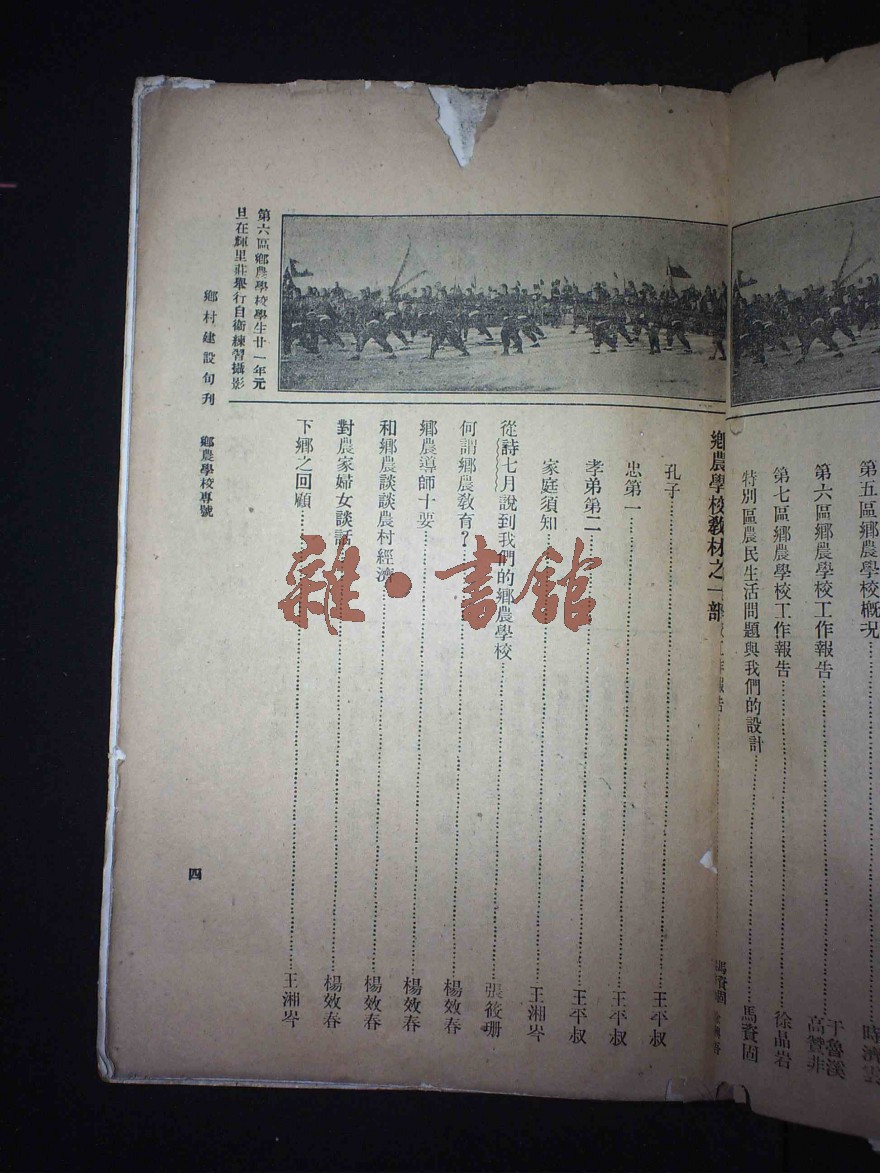 第五區鄉農學校概況……時濟雲
第六區鄉農學校工作報告……于魯溪 高贊非
第七區鄉農學校工作報告……徐晶岩
特別區農民生活問題與我們的設計……馬資固
鄉農學校教材之一部
孔子……王平叔
忠第一……王平叔
孝弟第二……王平叔
家庭須知……王湘岑
從詩七月說到我們的鄉農學校……張筱珊
何謂鄉農教育？……楊效春
鄉農導師十要……楊效春
和鄉農談談農村經濟……楊效春
對農家婦女談話……楊效春
下鄉之回顧……王湘岑
第六區鄉農學校學生廿一年元
旦在輝里莊舉行自衛練習攝影
鄉村建設旬刊 鄉農學校專號
四
雜·書館